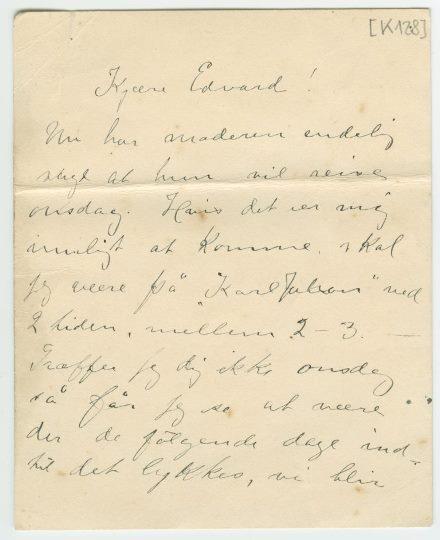 [K128]
Kjære Edvard!
Nu har moderen endelig
sagt at hun vil reise
onsdag. Hvis det er mig
muligt at komme, skal
jeg være på "Karl Johan" ved
2 tiden, mellem 2-3. —
Træffer jeg dig ikke onsdag
så får jeg se at være
der de følgende dage ind-
til det lykkes, vi blir